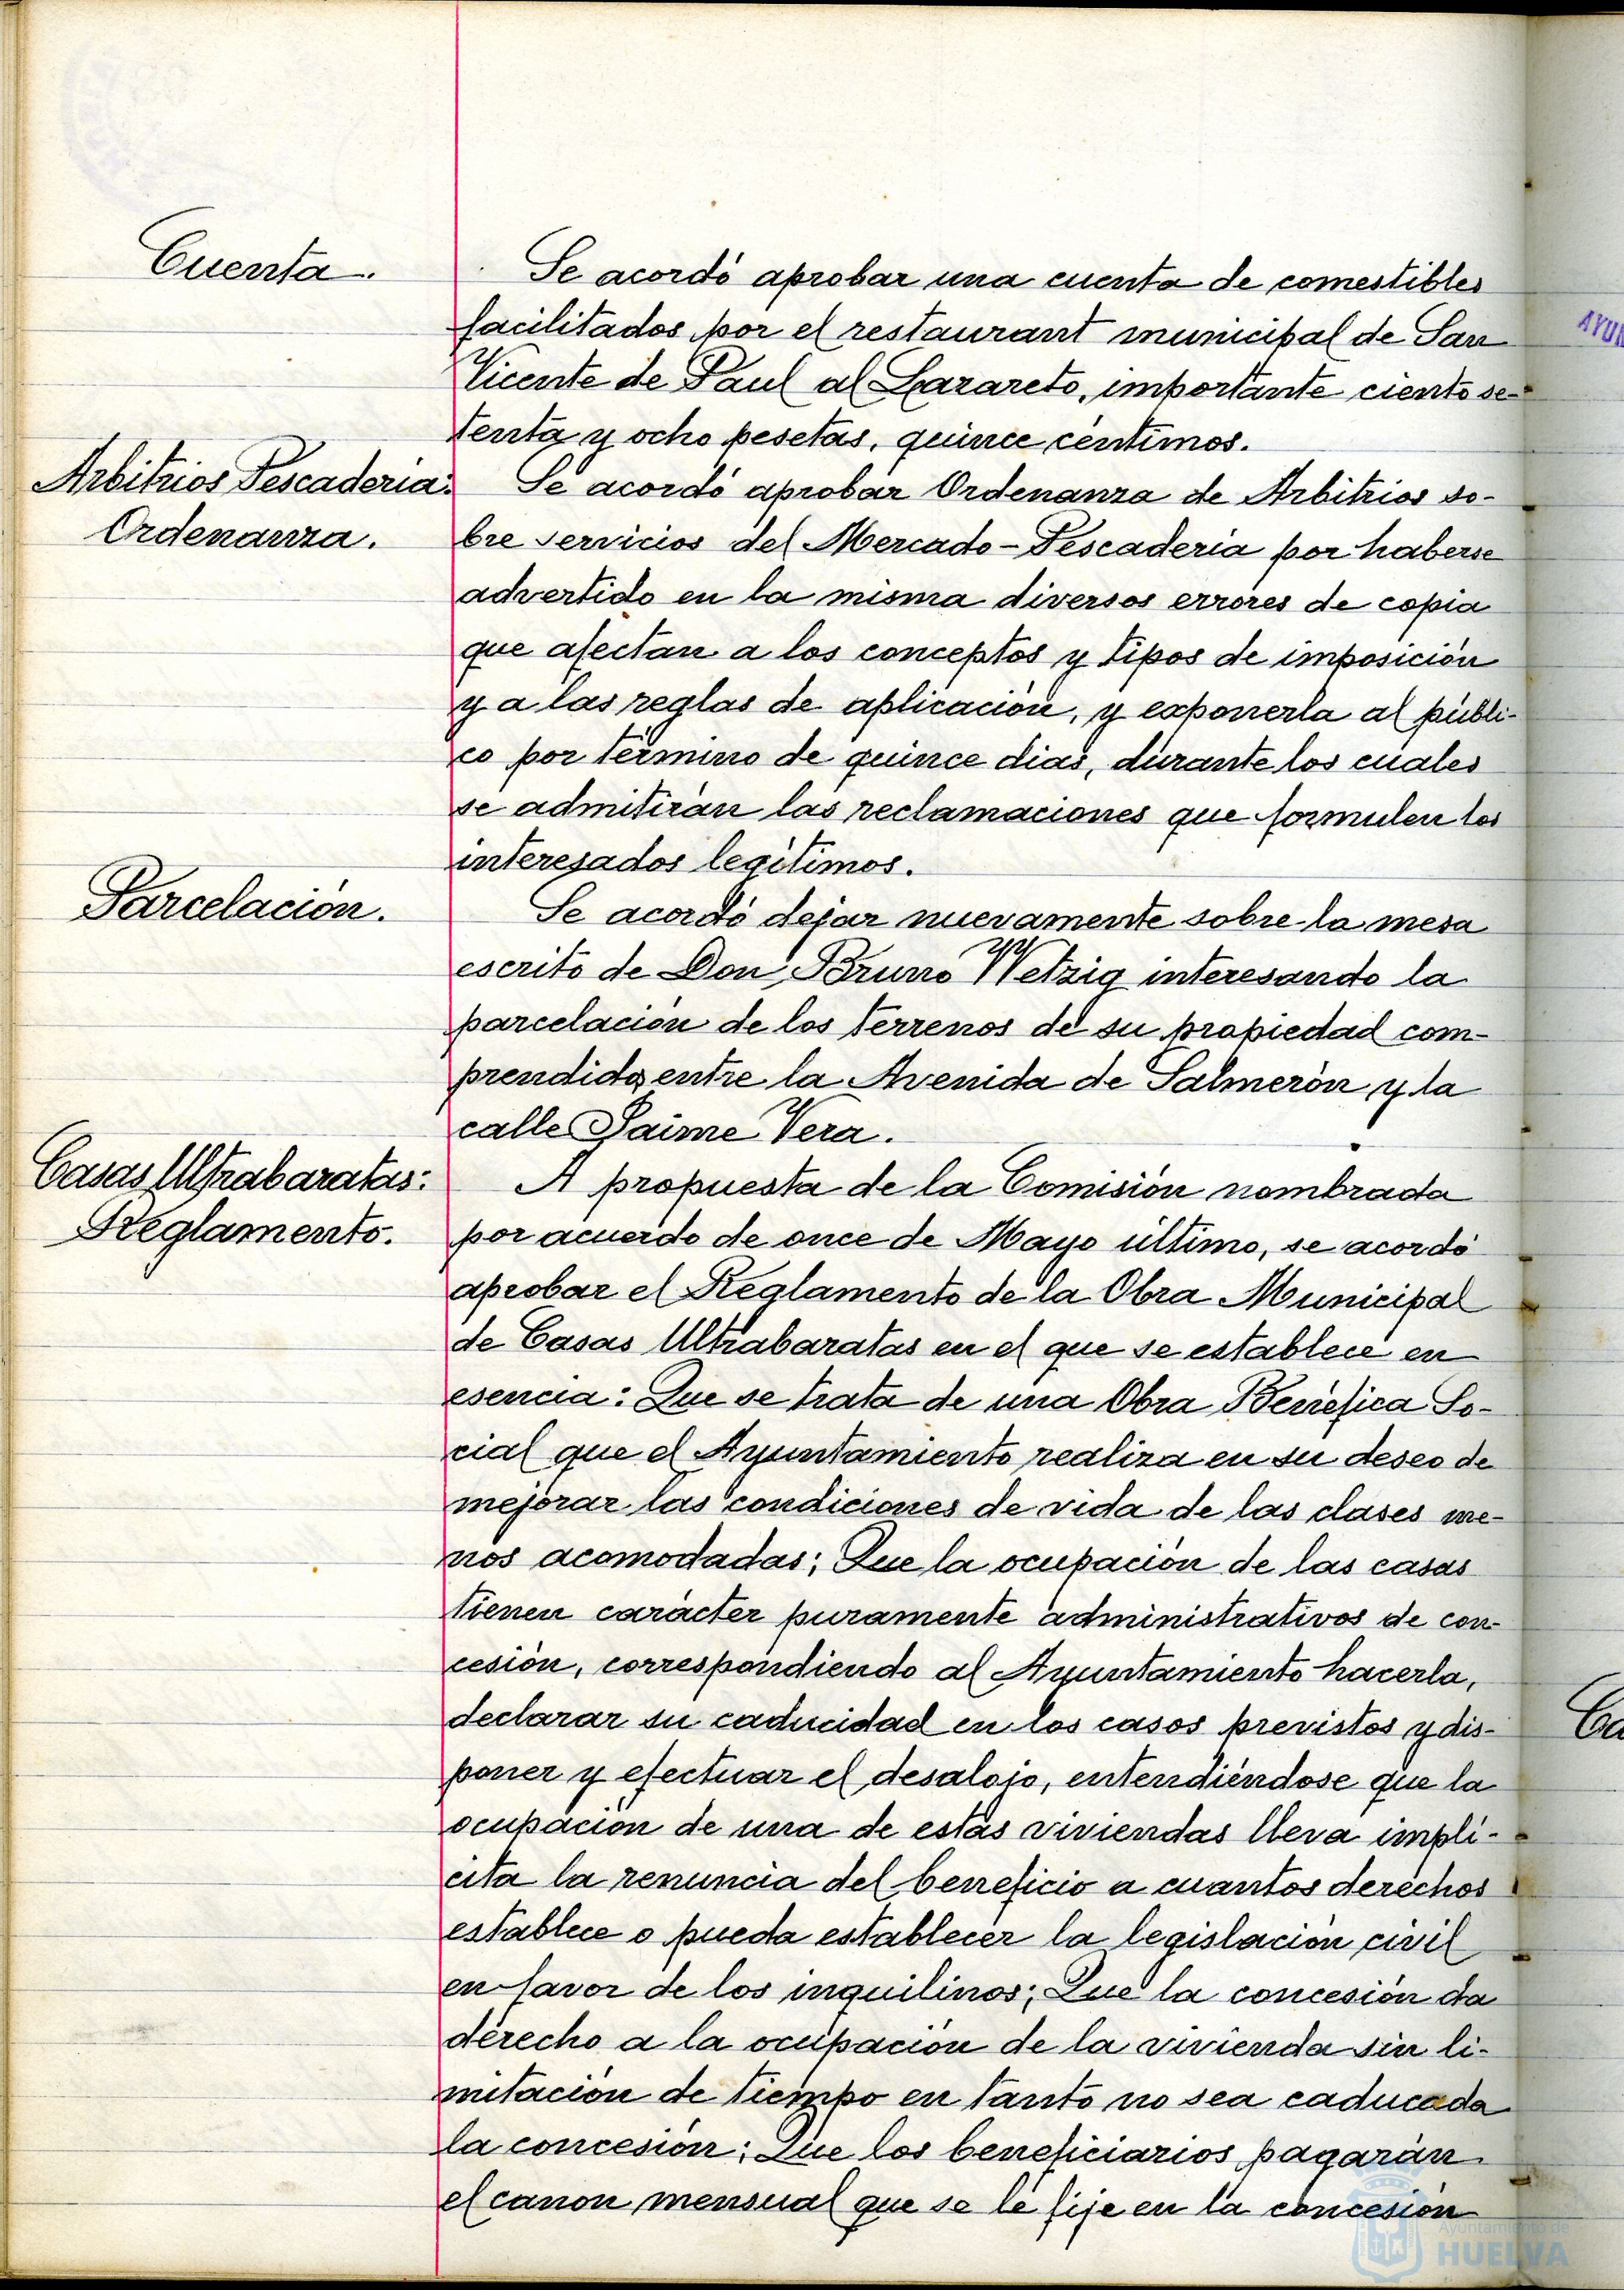 Cuenta.
Se acordó aprobar una cuenta de comestibles
facilitados por el restaurant municipal de San
Vicente de Paul al Lazareto, importante ciento se-
tenta y ocho pesetas, quince céntimos.
Arbitrios Pescaderia:
Ordenanza.
Se acordó aprobar Ordenanza de Arbitrios so-
bre servicios del Mercado-Pescaderia por haberse
advertido en la misma diversos errores de copia
que afectan a los conceptos y tipos de imposición
y a las reglas de aplicación, y exponerla al públi-
co por término de quince dias, durante los cuales
se admitirán las reclamaciones que formulen los
interesados legítimos.
Parcelación.
Se acordó dejar nuevamente sobre la mesa
escrito de Don Bruno Wetzig interesando la
parcelación de los terrenos de su propiedad com-
prendidos entre la Avenida de Salmerón y la
calle Jaime Vera.
Casas Ultrabaratas:
Reglamento.
A propuesta de la Comisión nombrada
por acuerdo de once de Mayo último, se acordó
aprobar el Reglamento de la Obra Municipal
de Casas Ultrabaratas en el que se establece en
esencia: Que se trata de una Obra Benéfica So-
cial que el Ayuntamiento realiza en su deseo de
mejorar las condiciones de vida de las clases me-
nos acomodadas; Que la ocupación de las casas
tienen carácter puramente administrativos de con-
cesión, correspondiendo al Ayuntamiento hacerla,
declarar su caducidad en los casos previstos y dis-
poner y efectuar el desalojo, entendiéndose que la
ocupación de una de estas viviendas lleva implí-
cita la renuncia del beneficio a cuantos derechos
establece o pueda establecer la legislación civil
en favor de los inquilinos; Que la concesión da
derecho a la ocupación de la vivienda sin li-
mitación de tiempo en tanto no sea caducada
la concesión; Que los beneficiarios pagarán
el canon mensual que se le fije en la concesión
Ayuntamiento de
HUELVA